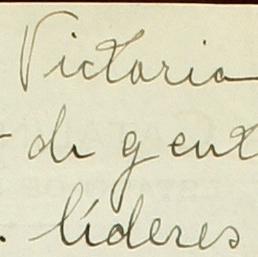 Victoria
de gent
. líderes